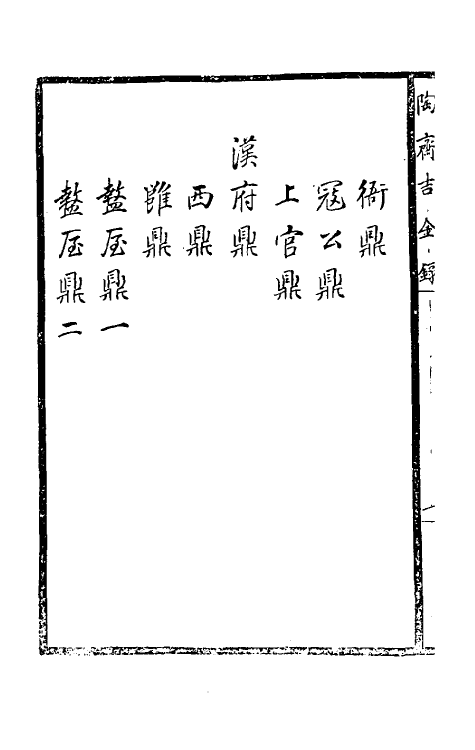 陶齋吉金錄
衙鼎
冦公鼎
上官鼎
漢府鼎
西鼎
雖鼎
盩厔鼎一
盩厔鼎二